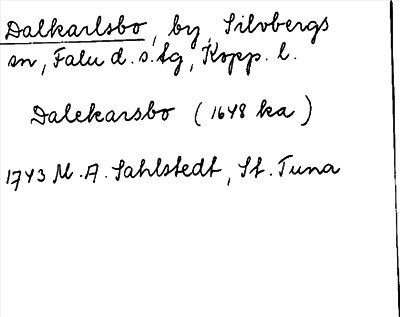 Dalkarlsbo, by, Silvbergs
sn, Falu d. s. tg, Kopp. l.
Dalekarsbo (1648 ka)
1743 M. A. Sahlstedt, St. Tuna